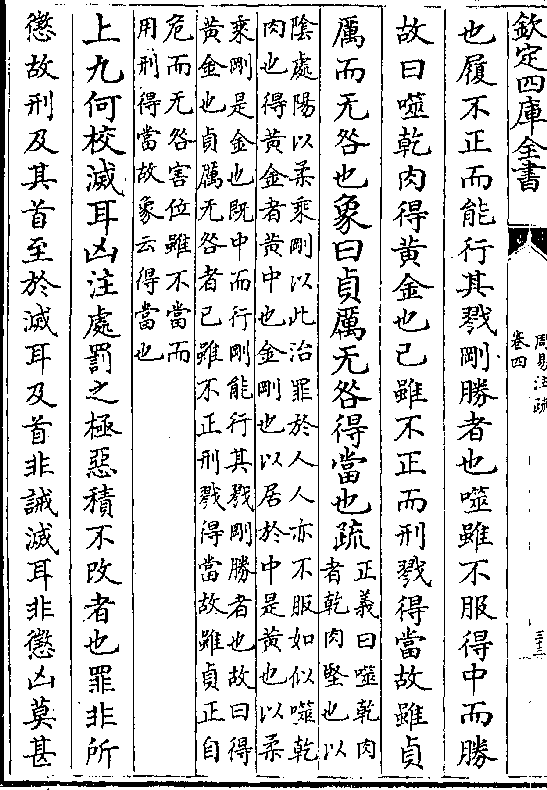 欽定四庫全書
周易注疏
卷四
也履不正而能行其戮剛勝者也噬雖不服得中而勝
故曰噬乾肉得黃金也己雖不正而刑戮得當故雖貞
厲而无咎也象曰貞厲无咎得當也疏
正義曰噬乾肉
者乾肉堅也以
陰處陽以柔乘剛以此治罪於人人亦不服如似噬乾
肉也得黃金者黃中也金剛也以居於中是黃也以柔
乘剛是金也既中而行剛能行其戮剛勝者也故曰得
黃金也貞厲无咎者己雖不正刑戮得當故雖貞正自
危而无咎害位雖不當而
用刑得當故象云得當也
上九何校滅耳凶注處罰之極惡積不改者也罪非所
懲故刑及其首至於滅耳及首非誡滅耳非懲凶莫甚